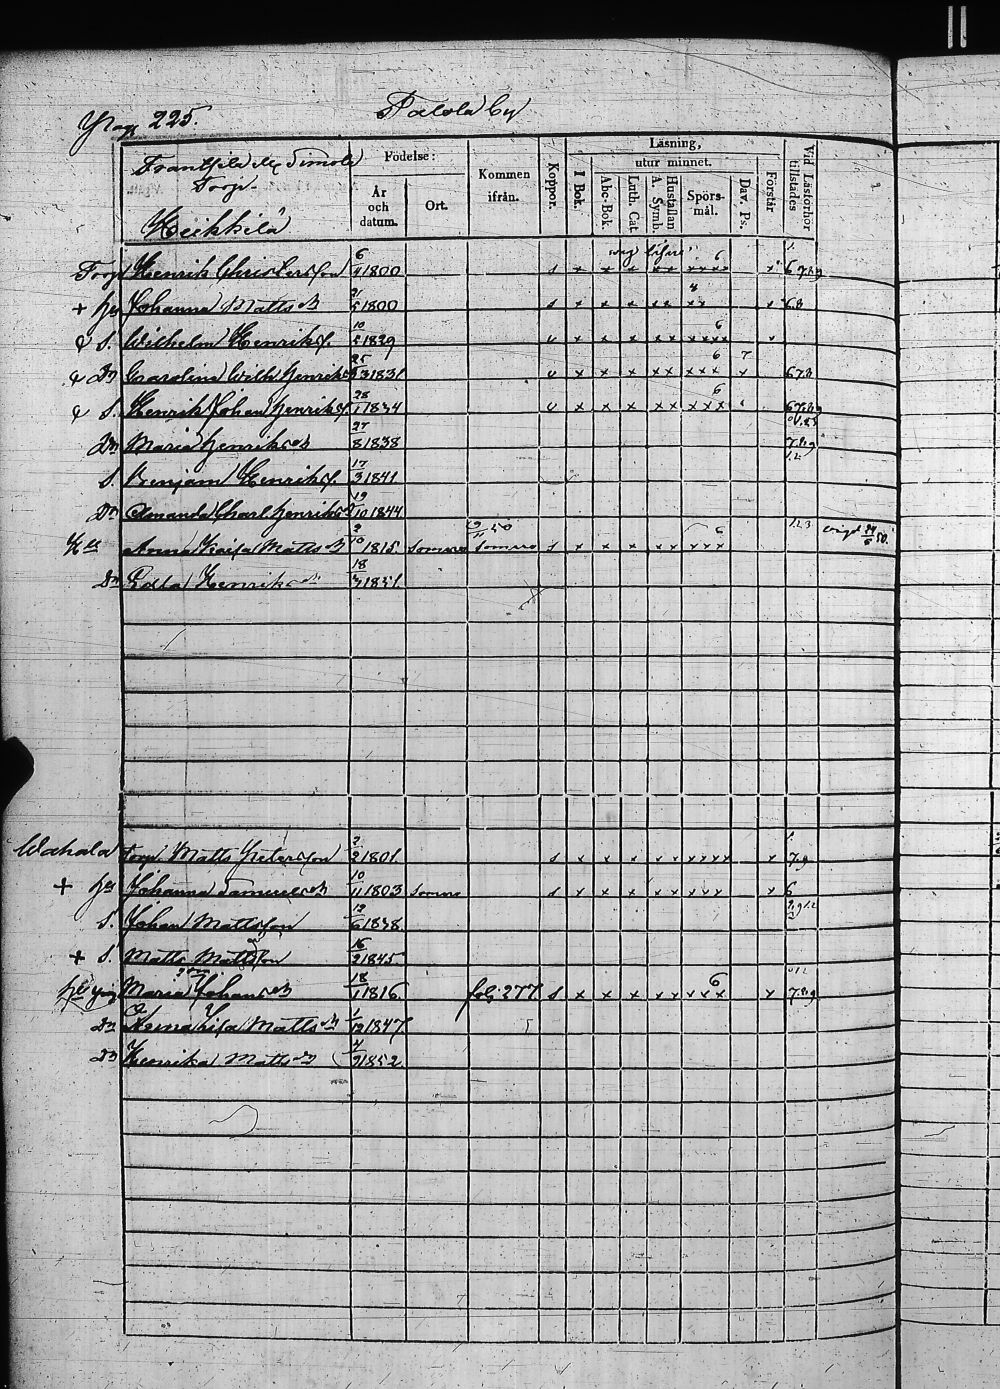 Pag. 225. Palola by
Torp
Heikkilä
Födelse:
År och datum.
Ort.
Kommen ifrån.
Koppor.
Läsning,
I Bok.
utur minnet.
Abc-Bok.
Luth. Cat.
A. Symb.
Hustaflan
Spörs-mål.
Dav. Ps.
Förstår
Vid Läsförhör tillstädes
Torp Henrik Christersson 6/4 1800 s x x x xx xxxx x
+ hu Johanna Mattsdr 1800 s x x x xx xx x 6.8
S. Wilhelm Henriks. 10/5 1829 v x x x xx xxxx x
Dr Carolina Wilh. Henriksdr 25/3 1831 v x x x xx xxx x 678
S. Henrik Johan Henriks. 28/1 1834 v x x x xx xxx
Dr Maria Henriksdr 27/8 1838
S. Benjam Henriks. 17/3 1841
Dr Amanda Charl. Henriksdr 19/10 1844
Hu Anna Kaisa Mattsdr 2/10 1815 Somero 50 Somero s x x x xx xxx 123 vigd 50.
Dr Edla Henriksdr 18/3 1851
Wahala Torp. Matts Petersson 1801. s x x x xx xxxx x 7.9
+ hu Johanna Samuelsdr 10/11 1803 Somero s x x x xx xxx x 6
S. Johan Mattsson 12/6 1838
+ S. Matts Mattsson 16/2 1845
Maria Johansdr 18/1 1816 fol: 277 s x x x xx xxxx x
Dr Anna Lisa Mattsdr 1/12 1847
Dr Henrika Mattsdr 4/9 1852